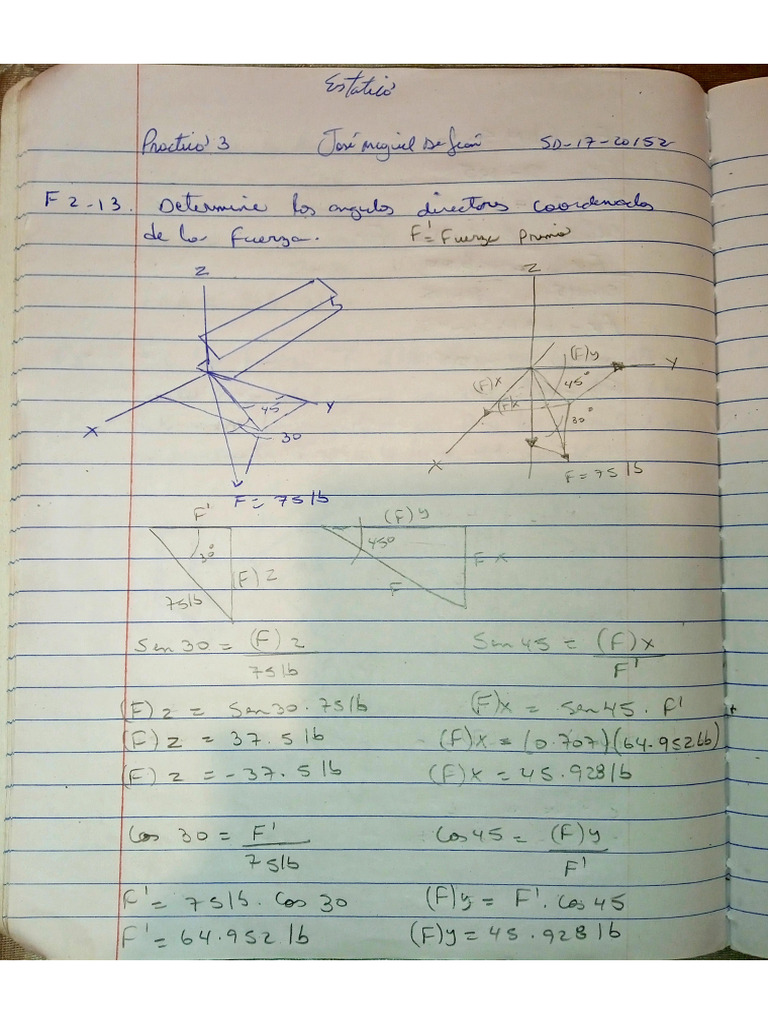 Estatica
Practica 3 José Miguel De León SD-17-20152
F 2-13. Determine los angulos directores coordenados
de la Fuerza. F'= Fuerza Prima
Z
Z
(F)y
Y
(F)x
45°
(F)x
45
Y
30°
X
30
X
F = 75 lb
F = 75 lb
F'
(F)y
30°
45°
(F)z
Fx
75lb
F
Sen 30 = (F)z / 75lb
Sen 45 = (F)x / F'
(F)z = Sen30.75lb (F)x = sen45. F'
(F)z = 37.5 lb (F)x = (0.707)(64.952lb)
(F)z = -37.5 lb (F)x = 45.928lb
Cos 30 = F' / 75lb
Cos45 = (F)y / F'
F' = 75lb. Cos 30 (F)y = F'. Cos 45
F' = 64.952 lb (F)y = 45.928 lb